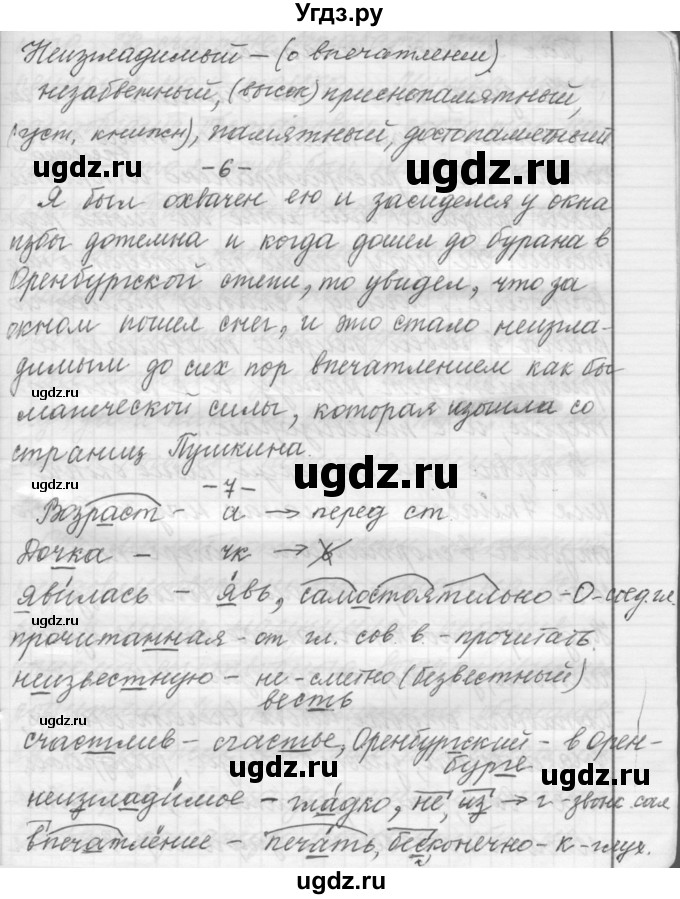 Угдз.ру
Неизгладимый – (о впечатлении)
незабвенный, (высок) приснопамятный,
(уст, книжн), памятный, достопамятный
ugdz.ru ugdz.ru
-6-
Я был охвачен ею и засиделся у окна
избы дотемна и когда дошел до бурана в
Оренбургской степи, то увидел, что за
окном пошел снег, и это стало неизгла-
димым до сих пор впечатлением как бы
ugdz.ru
магической силы, которая изошла со
страниц Пушкина.
ugdz.ru
-7-
Возраст – а → перед ст.
ugdz.ru
Дочка – чк → ь
явилась – явь, самостоятельно – О – соед. гл.
прочитанная – от гл. сов в. – прочитать.
неизвестную – не – сметно (безвестный)
весть
ugdz.ru
счастлив – счастье, Оренбургский – в Орен-
бурге
ugdz.ru
неизгладимое – гладко, не, из → г – звонк. согл
впечатление – печать, бесконечно – к – глух.
ugdz.ru
ugdz.ru